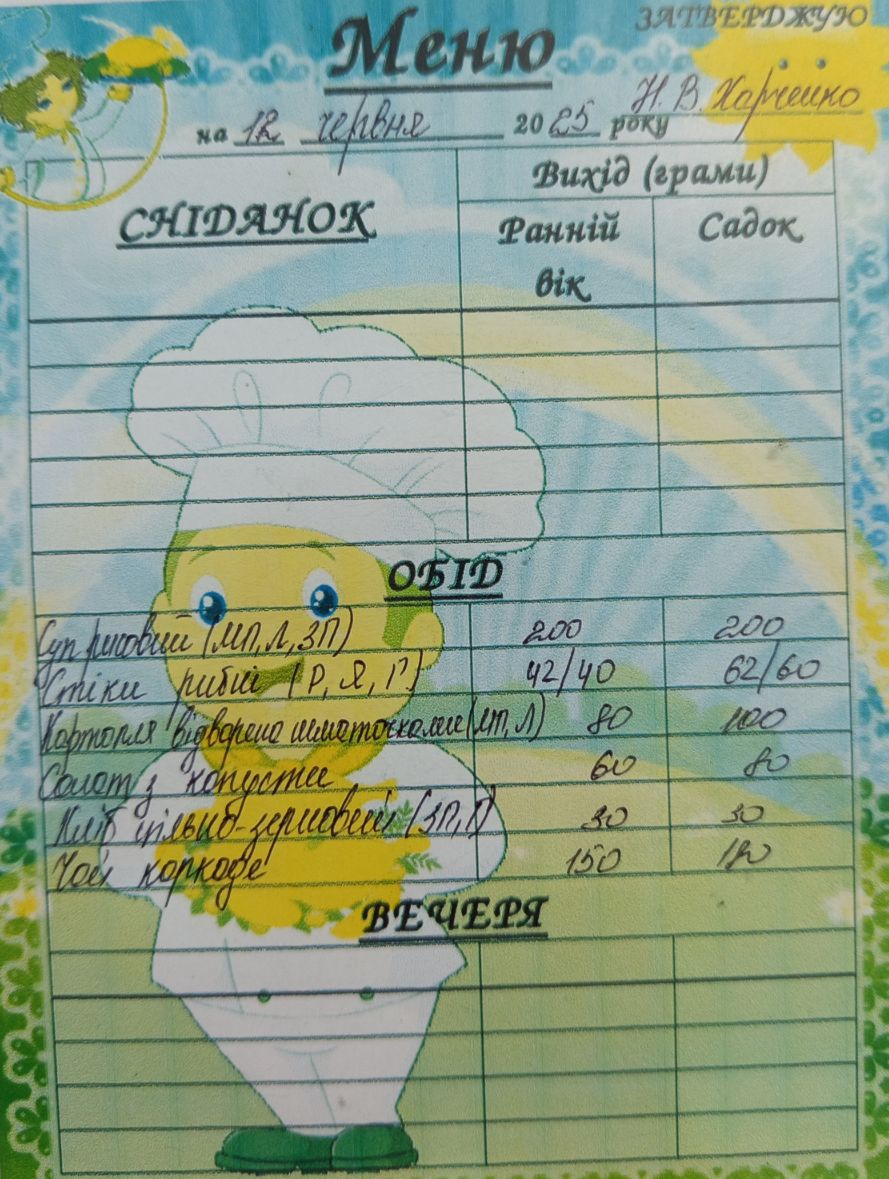 ЗАТВЕРДЖУЮ
Меню
Н. В. Харченко
на 12 червня 2025 року
СНІДАНОК
Вихід (грами)
Ранній вік
Садок
ОБІД
Суп рисовий (МП, Л, ЗП) 200 200
Стіки рибні (Р, Я, Г) 42/40 62/60
Картопля відварена шматочками (МП, Л) 80 100
Салат з капусти 60 80
Хліб цільно-зерновий (ЗП, Г) 30 30
Чай каркаде 150
ВЕЧЕРЯ